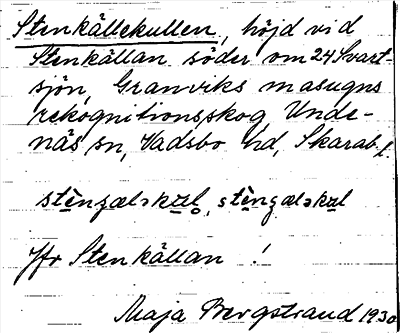 Stenkällekullen, höjd vid
Stenkällan söder om 24 Svart-
sjön, Granviks masugns
rekognitionsskog, Unde-
näs sn, Vadsbo hd, Skarab. l.
Jfr Stenkällan !
Maja Bergstrand 1930